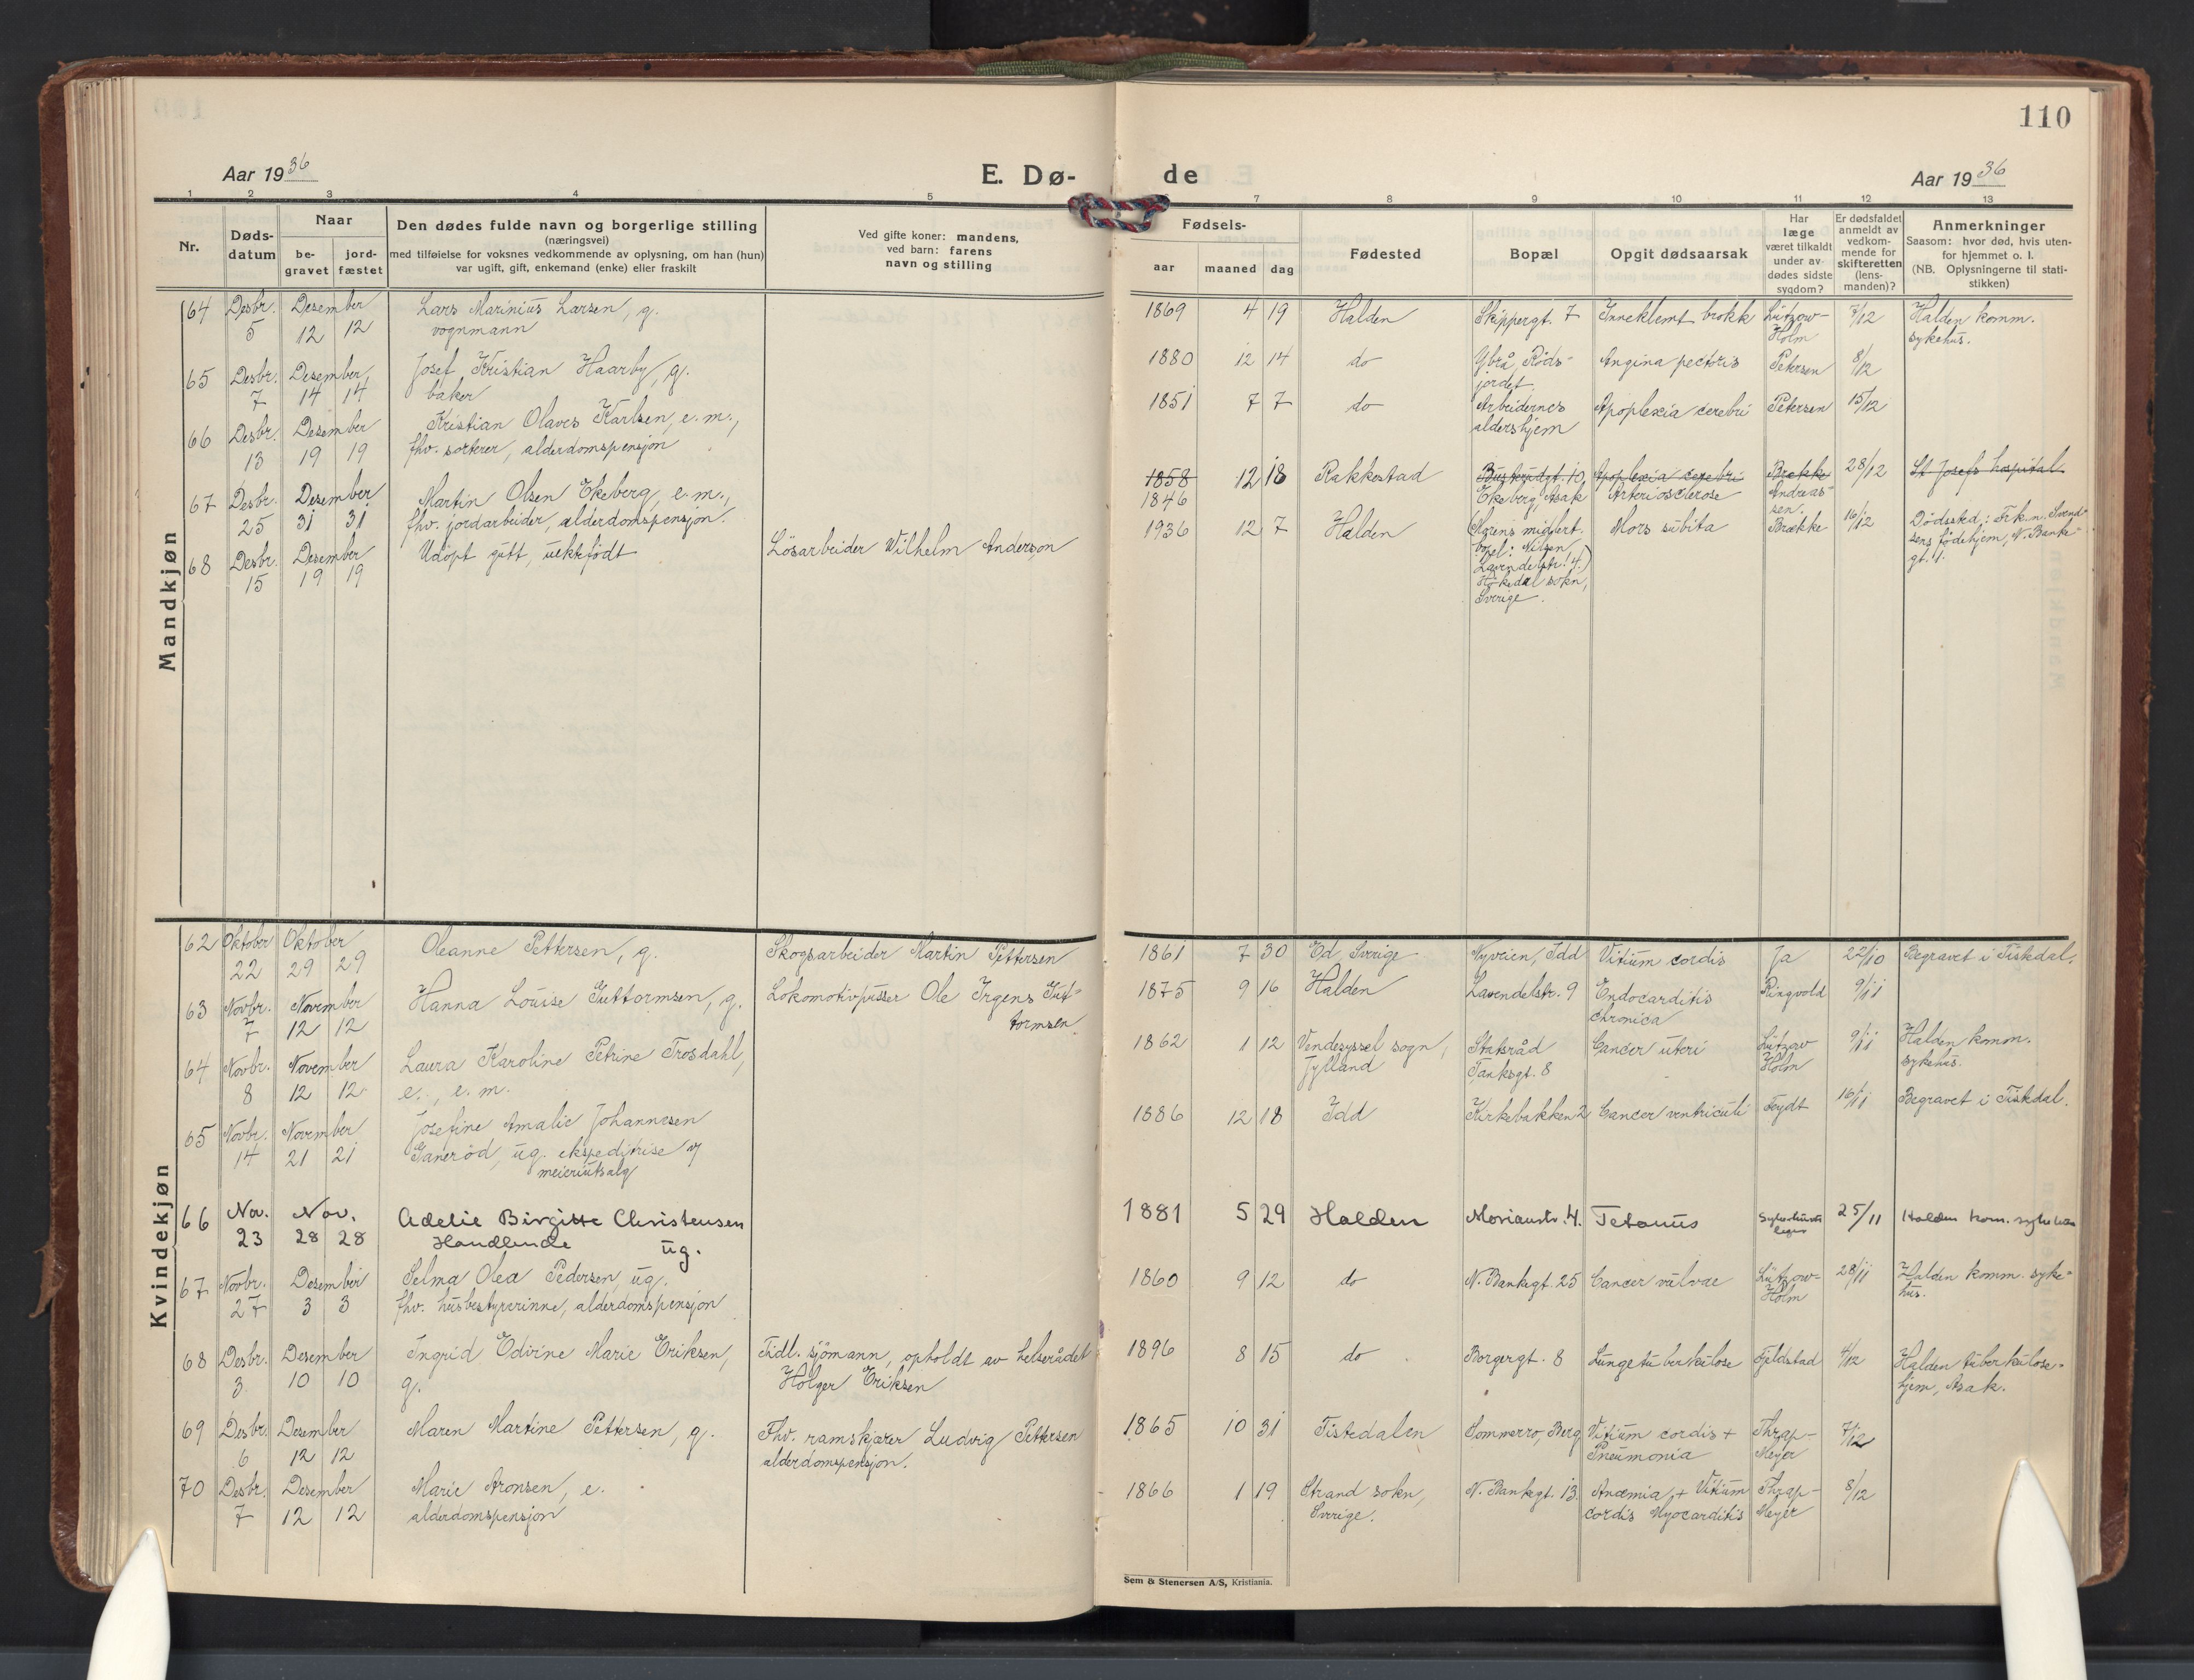 110
Aar 1936
E. Dø-
de
Aar 1936
1 2 3 4 5 7 8 9 10 11 12 13
Nr.
Døds-
datum
Naar
be-
gravet
jord-
fæstet
Den dødes fulde navn og borgerlige stilling
(næringsvei)
med tilføielse for voksnes vedkommende av oplysning, om han (hun)
var ugift, gift, enkemand (enke) eller fraskilt
Ved gifte koner: mandens,
ved barn: farens
navn og stilling
Fødsels-
aar maaned dag
Fødested
Bopæl
Opgit dødsaarsak
Har
læge
været tilkaldt
under av-
dødes sidste
sygdom?
Er dødsfaldet
anmeldt av
vedkom-
mende for
skifteretten
(lens-
manden)?
Anmerkninger
Saasom: hvor død, hvis uten-
for hjemmet o. l.
(NB. Oplysningerne til stati-
stikken)
Mandkjøn
64 Desbr. Desember Lars Marinius Larsen, g. 1869 4 19 Halden Skippergt. 7 Inneklemt brokk Lützow- 7/12 Halden komm.
5 12 12 vognmann Holm sykehus.
65 Desbr. Desember Josef Kristian Haarby, g. 1880 12 14 do Ybrå, Röds- Angina pectoris Petersen 8/12
7 14 14 baker jordet
66 Desbr. Desember Kristian Olaves Karlsen, e. m., 1851 7 7 do Arbeidernes Apoplexia cerebri Petersen 15/12
13 19 19 fhv. sorterer, alderdomspensjon aldershjem
67 Desbr. Desember Martin Olsen Ekeberg, e. m., 1858 12 18 Rakkestad Busterudgt. 10 Apoplexia cerebri Brække 28/12 St Josefs hospital
25 31 31 fhv. jordarbeider, alderdomspensjon. 1846 Ekeberg, Asak Arteriosclerose Andreas-
sen.
68 Desbr. Desember Udöpt gutt, uekkfödt Lösarbeider Wilhelm Anderson 1936 12 7 Halden (Morens midlert. Mors subita Brække 16/12 Dödssted: Frk. n. Svend-
15 19 19 bopel: Nilsen, sens födehjem, N. Banke-
Lavendelstr. 4.) gt. 1.
Hökedal sokn,
Sverige.
Kvindekjøn
62 Oktober Oktober Oleanne Pettersen, g. Skogsarbeider Martin Pettersen 1861 7 30 Ed, Sverige Nyveien, Idd Vitium cordis Ja 22/10 Begravet i Tiskdal.
22 29 29
63 Novbr. November Hanna Louise Guttormsen, g. Lokomotivpusser Ole Irgens Gut- 1875 9 16 Halden Lavendelstr. 9 Endocarditis Ringvold 9/11
7 12 12 tormsen. chronica
64 Novbr. November Laura Karoline Petrine Trosdahl, 1862 1 12 Vendesyssel sogn, Statsråd Cancer uteri Lützow 9/11 Halden komm.
8 12 12 e., e. m. Jylland Tanksgt. 8 Holm sykehus.
65 Novbr. November Josefine Amalie Johannesen 1886 12 18 Idd Kirkebakken 2 Cancer ventriculi Feydt 16/11 Begravet i Tiskdal.
14 21 21 Ganeröd, ug. ekspeditrise v
meieriutsalg
66 Nov. Nov. Adelie Birgitte Christensen 1881 5 29 Halden Morianstr. 4. Tetanus Sykehusets 25/11 Halden kom. sykehus
23 28 28 Handlende ug. leger
67 Novbr. Desember Selma Olea Pedersen, ug. 1860 9 12 do N. Bankegt. 25 Cancer vulvae Lützow- 28/11 Halden komm. syke-
27 3 3 fhv. husbestyrerinne, alderdomspensjon Holm hus.
68 Desbr. Desember Ingrid Edvine Marie Eriksen, Tidl. sjömann, opholdt av helserådet 1896 8 15 do Borgergt. 8 Lungetuberkulose Fjeldstad 4/12 Halden tuberkulose-
3 10 10 g. Holger Eriksen hjem, Asak.
69 Desbr. Desember Maren Martine Pettersen, g. Fhv. ramskjærer Ludvig Pettersen 1865 10 31 Tistedalen Sommerro, Berg Vitium cordis + Thrap- 7/12
6 12 12 alderdomspensjon. Pneumonia Meyer
70 Desbr. Desember Marie Aronsen, e. 1866 1 19 Strand sokn, N. Bankgt. 13. Anæmia + Vitium Thrap- 8/12
7 12 12 alderdomspensjon Sverige. cordis Myocarditis Meyer
Sem & Stenersen A/S, Kristiania.